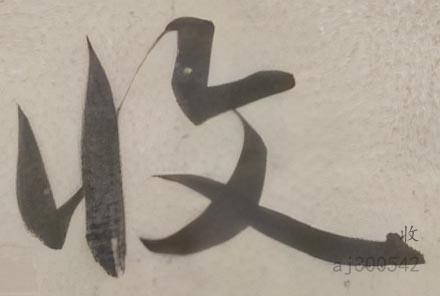 收
收
aj300542